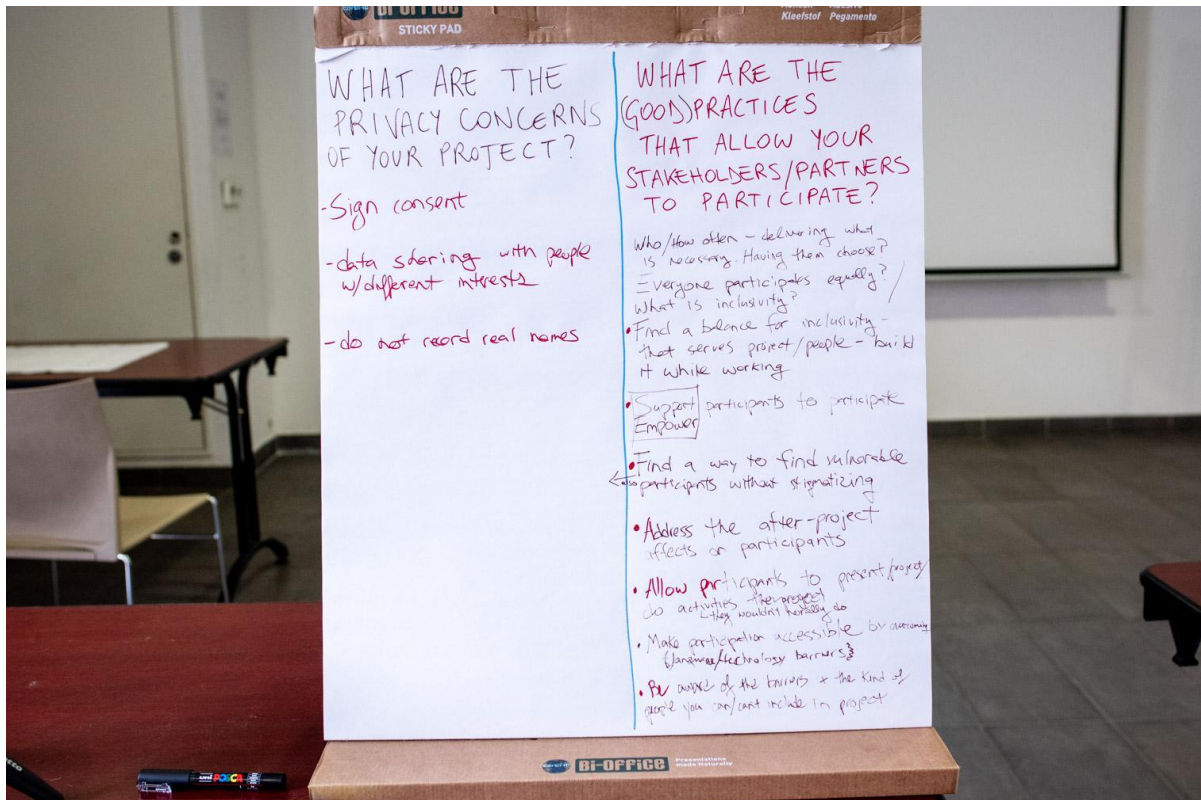 Bi-OFFiCE
STICKY PAD
Kleefstof Pegamento
WHAT ARE THE
PRIVACY CONCERNS
OF YOUR PROJECT?
-Sign consent
-data sharing with people
w/different interests
-do not record real names
WHAT ARE THE
(GOOD)PRACTICES
THAT ALLOW YOUR
STAKEHOLDERS/PARTNERS
TO PARTICIPATE?
Who/How often - delivering what
is necessary. Having them choose?
Everyone participates equally?/
What is inclusivity?
• Find a balance for inclusivity -
that serves project/people - build
it while working
• Support participants to participate
Empower
• Find a way to find vulnorable
participants without stigmatizing
• Address the after-project
effects on participants
• Allow participants to present/project/
do activities
they wouldn't normally do
• Make participation accessible by
technology barriers}
• Be aware of the barriers + the kind of
people you can/cant include in project
Bi-OFFiCE
Presentations
made Naturally
uni POSCA